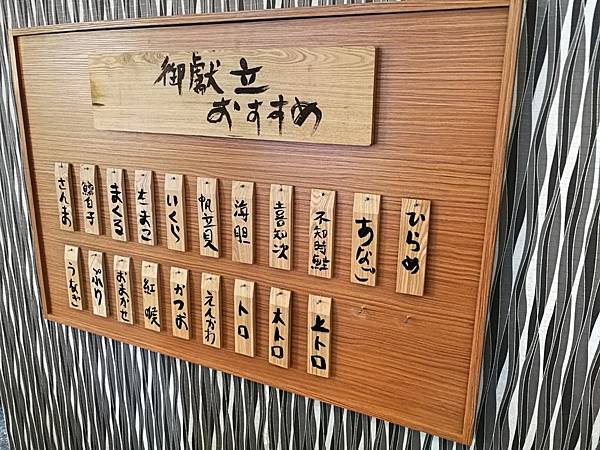 御献立
おすすめ
ひらめ
あなご
不知時鮭
喜知次
海胆
帆立貝
いくら
たまご
まぐろ
鱈白子
さんま
上トロ
大トロ
トロ
えんがわ
かつお
紅喉
おまかせ
ぶり
うなぎ